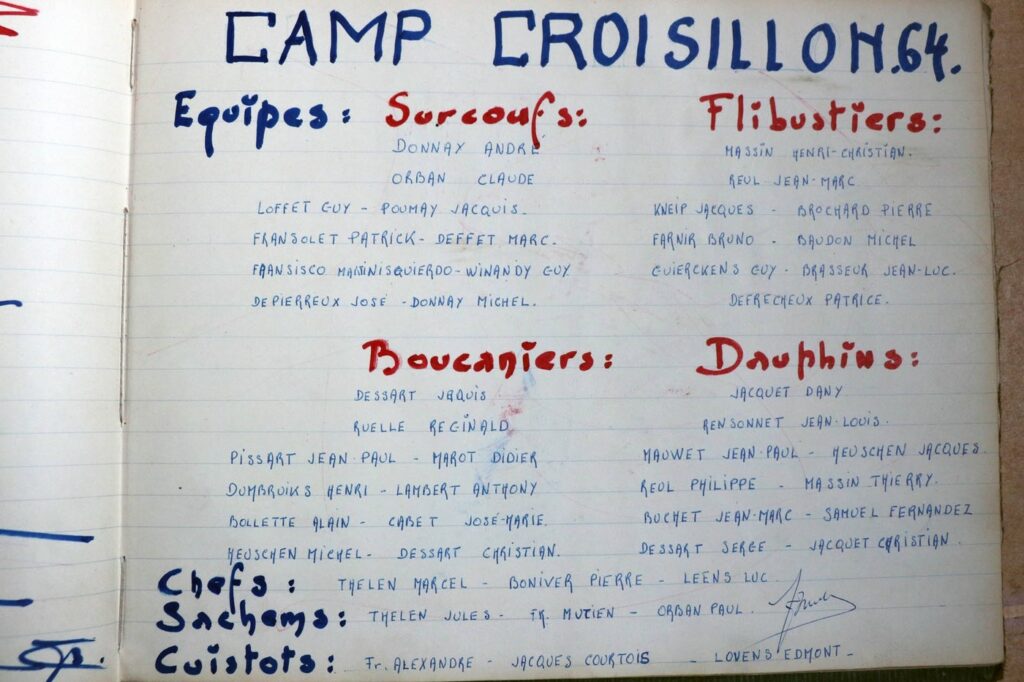 CAMP CROISILLON.64.
Equipes: Surcoufs: Flibustiers:
DONNAY ANDRÉ
ORBAN CLAUDE
LOFFET GUY - POUMAY JACQUIS.
FRANSOLET PATRICK - DEFFET MARC.
FRANSISCO MARTINISQUIERDO - WINANDY GUY
DEPIERREUX JOSÉ - DONNAY MICHEL.
MASSIN HENRI-CHRISTIAN.
REUL JEAN-MARC
KNEIP JACQUES - BROCHARD PIERRE
FARNIR BRUNO - BAUDON MICHEL
GUIERCKENS GUY - BRASSEUR JEAN-LUC.
DEFRECHEUX PATRICE.
Boucaniers: Dauphins:
DESSART JAQUIS
RUELLE REGINALD
PISSART JEAN-PAUL - MAROT DIDIER
DUMBRUIKS HENRI - LAMBERT ANTHONY
BOLLETTE ALAIN - CABET JOSÉ-MARIE.
HEUSCHEN MICHEL - DESSART CHRISTIAN.
JACQUET DANY
RENSONNET JEAN-LOUIS.
MAUWET JEAN-PAUL - HEUSCHEN JACQUES.
REUL PHILIPPE - MASSIN THIERRY.
BUCHET JEAN-MARC - SAMUEL FERNANDEZ
DESSART SERGE - JACQUET CHRISTIAN.
Chefs: THELEN MARCEL - BONIVER PIERRE - LEENS LUC
Sachems: THELEN JULES - FR. MUTIEN - ORBAN PAUL.
Cuistots: Fr. ALEXANDRE - JACQUES COURTOIS - LOVENS EDMONT -